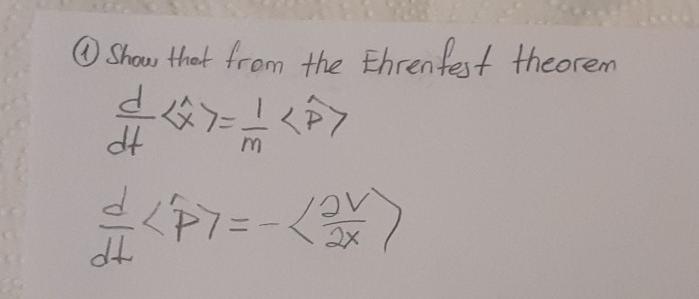 ① Show that from the Ehrenfest theorem
d/dt <x̂> = 1/m <p̂>
d/dt <p̂> = - <∂V/∂x>